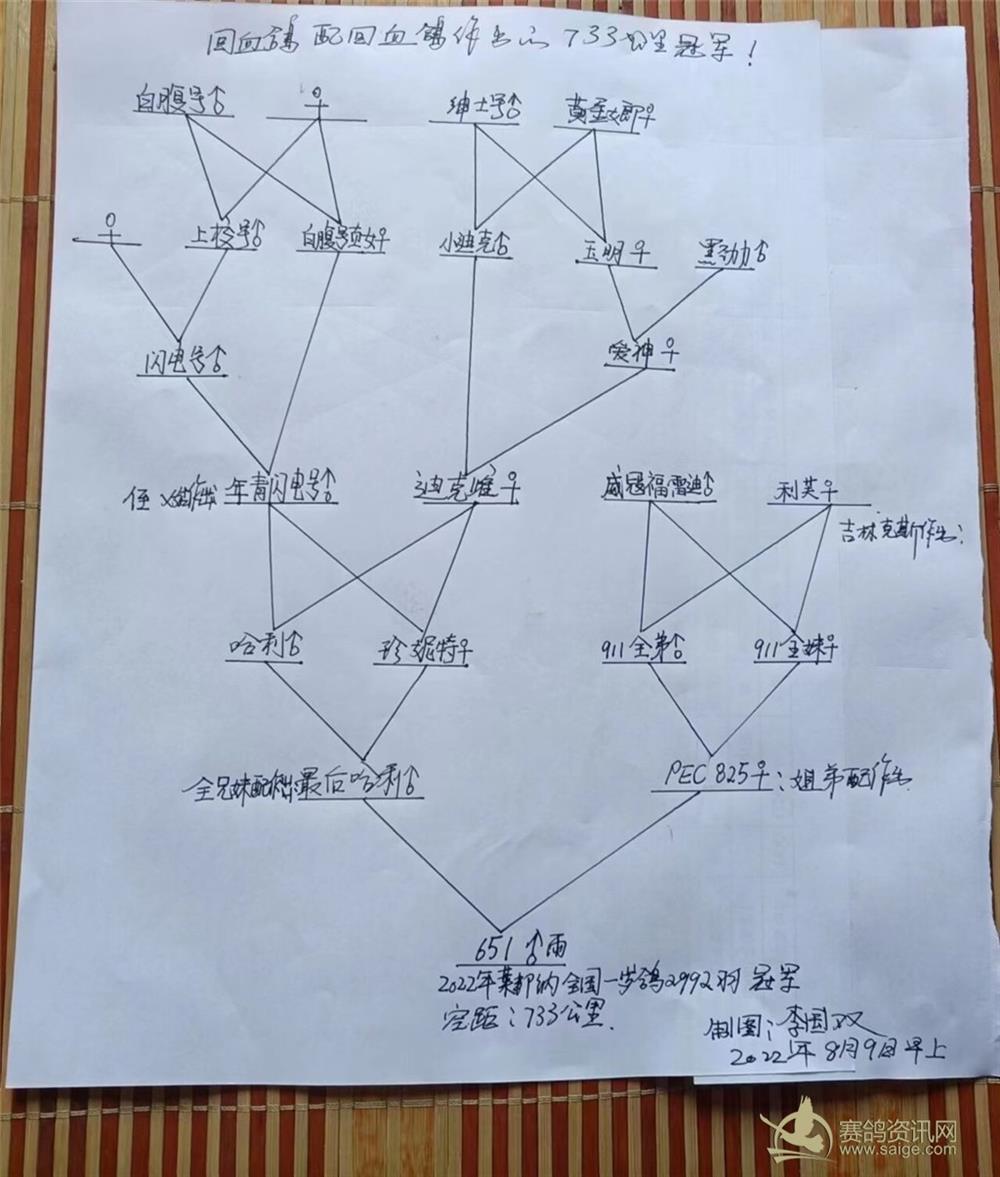 回血鸽配回血鸽作出的733公里冠军!
白腹号♂ ♀ 绅士号♂ 黄金女郎♀
♀ 上校号♂ 白腹号直女♀ 小迪克♂ 玉明♀ 黑劲力♂
闪电号♂ 爱神♀
侄 年青闪电号♂ 迪克雌♀ 威冠福雷迪♂ 利芙♀
吉林克斯作出:
哈利♂ 珍妮特♀ 911全弟♂ 911全妹♀
全兄妹配作出:最后哈利♂ PEC825♀:姐弟配作出
651♂雨
2022年莱部纳全国一岁鸽2992羽冠军
空距:733公里.
制图:李国双
2022年8月9日早上
赛鸽资讯网
www.saige.com